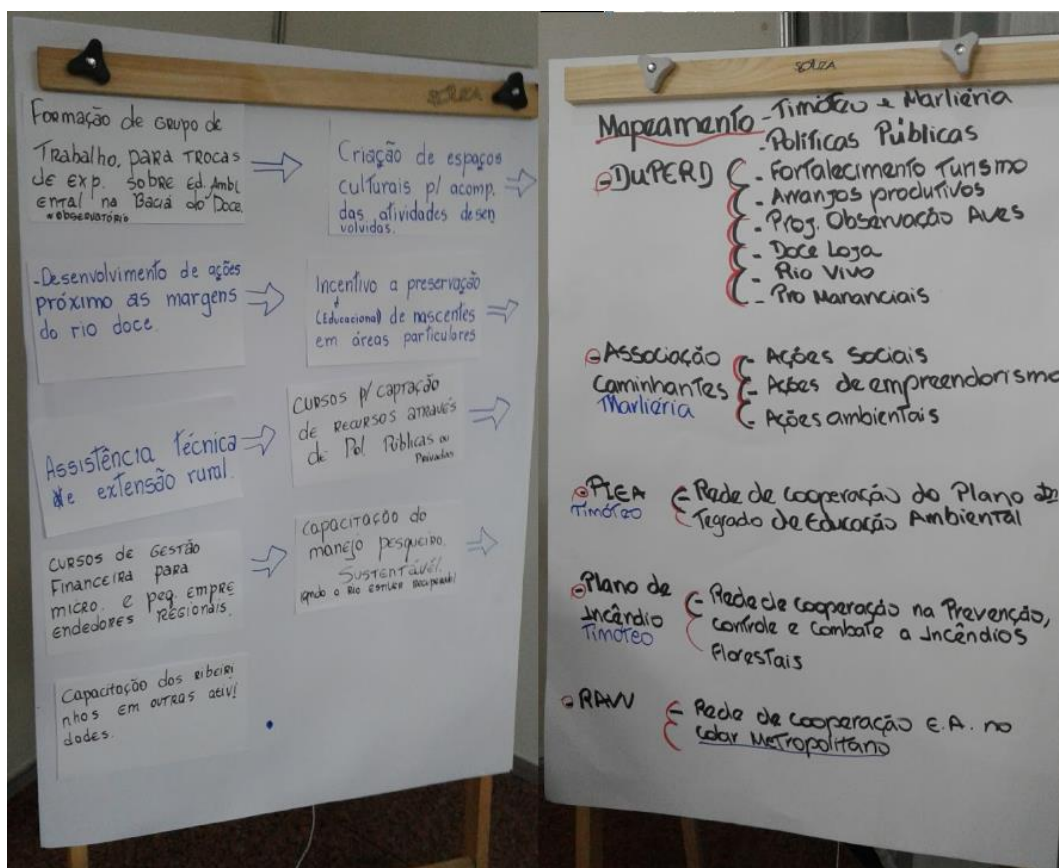 SOUZA
Formação de Grupo de
Trabalho, para trocas
de exp. sobre Ed. Ambi
ental na Bacia do Doce.
*OBSERVATÓRIO
Criação de espaços
culturais p/ acomp.
das atividades desen
volvidas.
-Desenvolvimento de ações
próximo as margens
do rio doce.
Incentivo a preservação
(Educacional) de nascentes
em áreas particulares
Assistência técnica
e extensão rural.
CURSOS P/ CAPTAÇÃO
DE RECURSOS ATRAVÉS
DE Pol. Públicas ou
Privadas
CURSOS DE GESTÃO
FINANCEIRA PARA
MICRO. E PEQ. EMPRE
ENDEDORES REGIONAIS.
Capacitação do
manejo pesqueiro.
SUSTENTÁVEL.
(qndo o Rio estiver recuperado)
Capacitação dos ribeiri
nhos em outras ativi
dades.
SOUZA
Mapeamento - Timóteo e Marliéria
- Políticas Públicas
- DuPERD - Fortalecimento Turismo
- Arranjos produtivos
- Proj. Observação Aves
- Doce Loja
- Rio Vivo
- Pro Mananciais
- Associação - Ações Sociais
Caminhantes - Ações de empreendorismo
Marliéria - Ações ambientais
- PIEA - Rede de cooperação do Plano In
Timóteo Tegrado de Educação Ambiental
- Plano de - Rede de cooperação na Prevenção,
Incêndio controle e Combate a Incêndios
Timóteo Florestais
- RAVV - Rede de cooperação E.A. no
colar Metropolitano